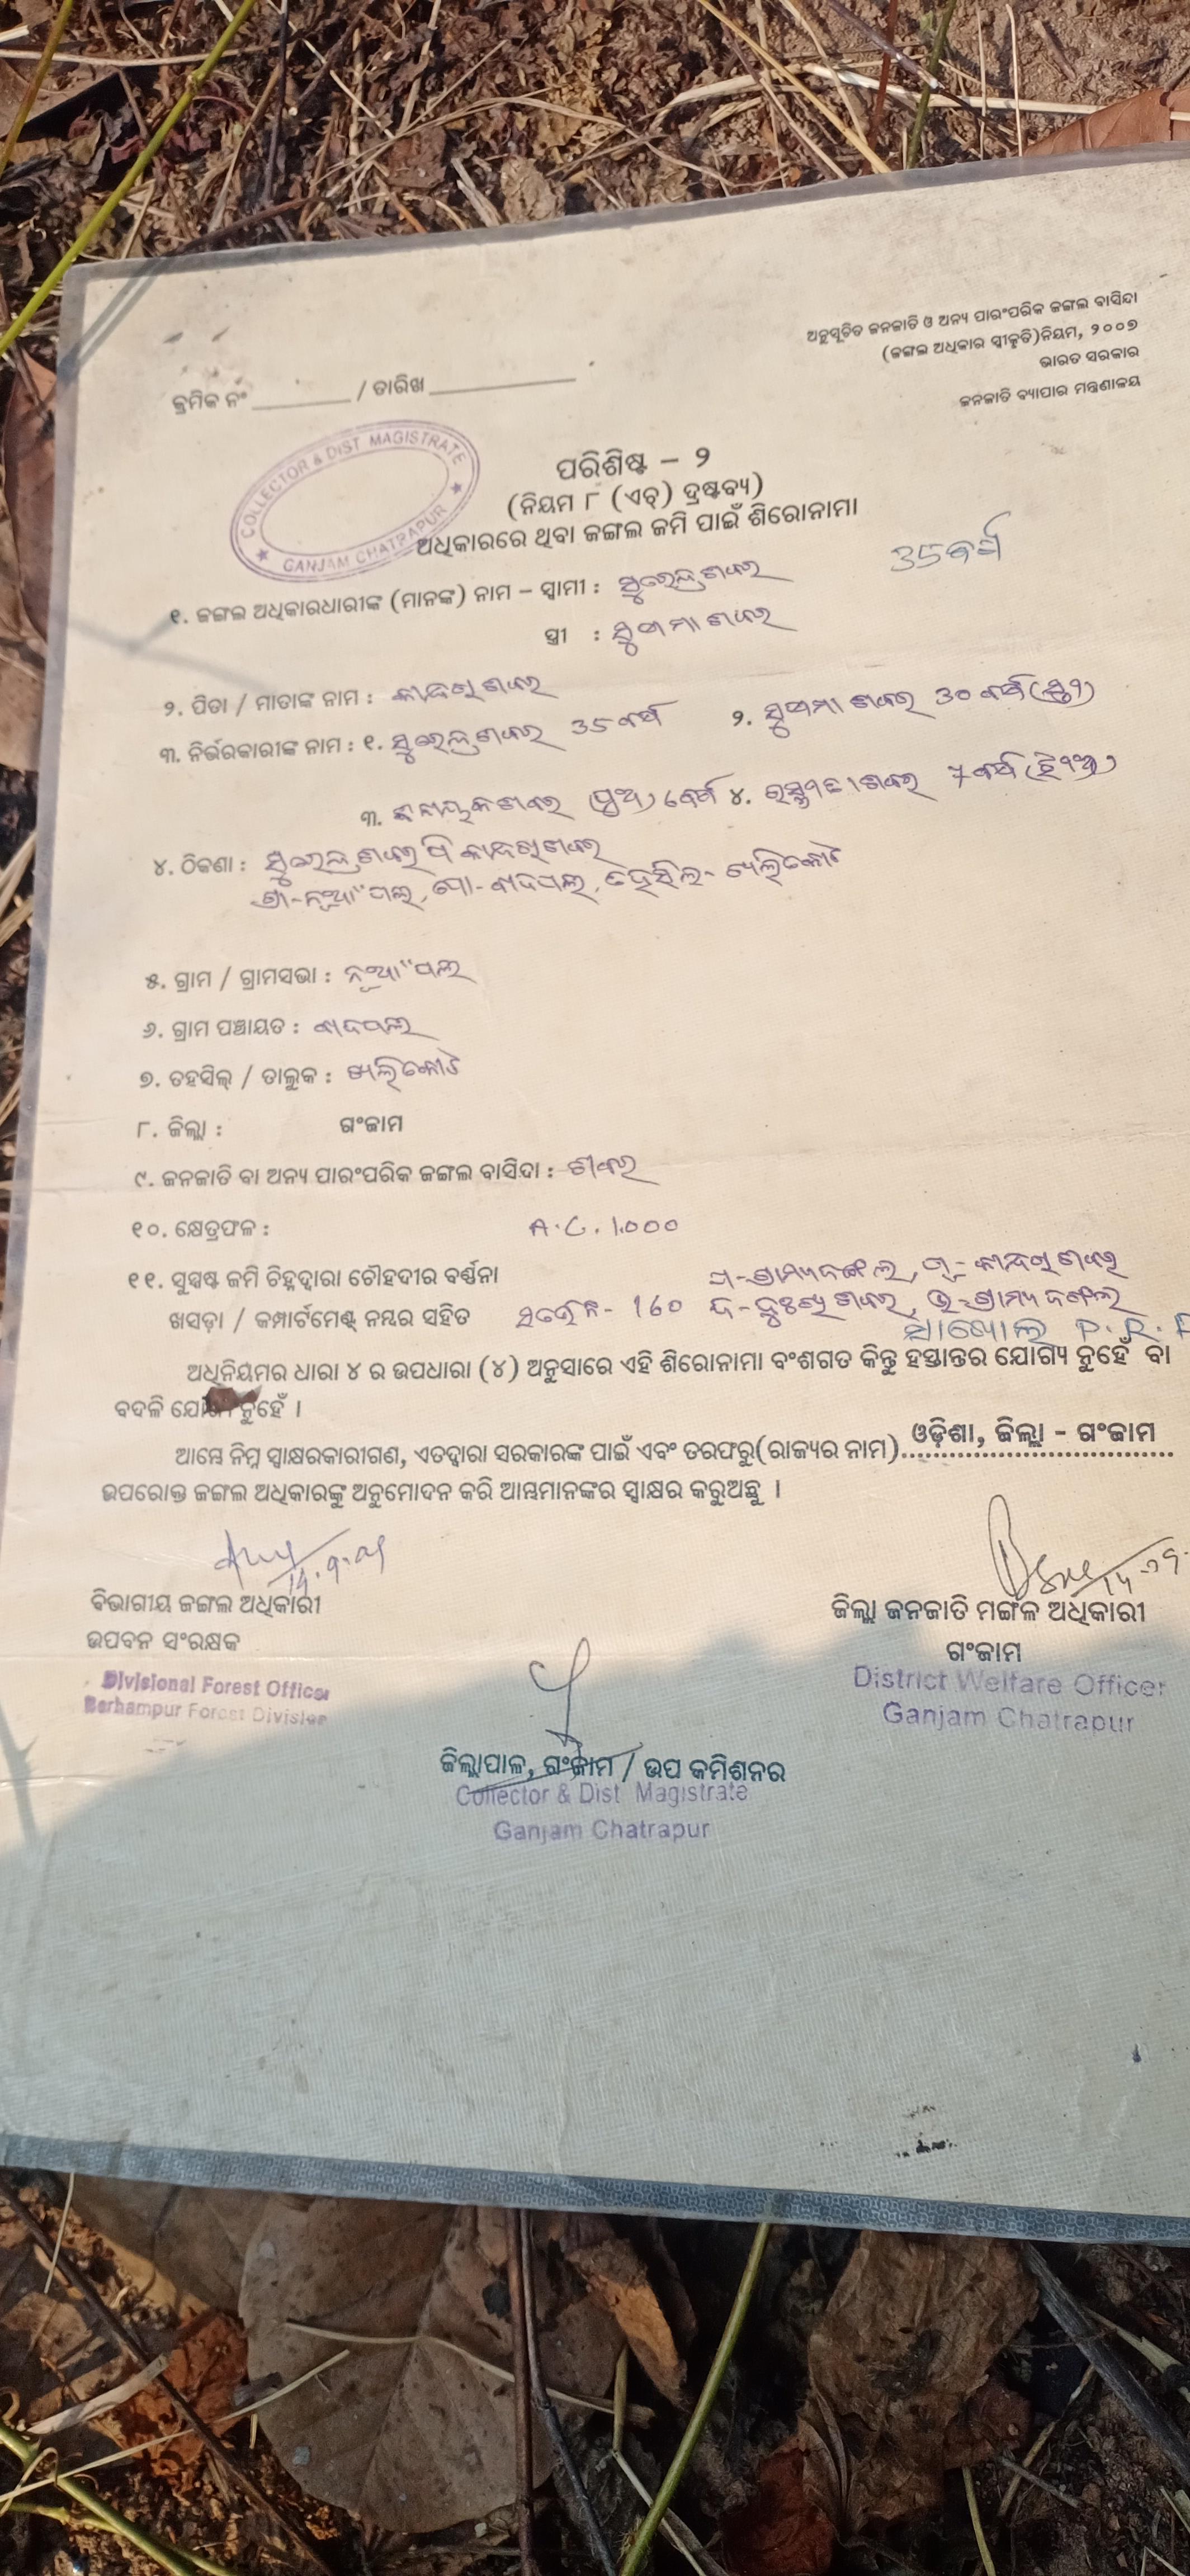 ଅନୁସୂଚିତ ଜନଜାତି ଓ ଅନ୍ୟ ପାରଂପରିକ ଜଙ୍ଗଲ ବାସିନ୍ଦା
(ଜଙ୍ଗଲ ଅଧିକାର ସ୍ୱୀକୃତି)ନିୟମ, ୨୦୦୭
ଭାରତ ସରକାର
ଜନଜାତି ବ୍ୟାପାର ମନ୍ତ୍ରଣାଳୟ
କ୍ରମିକ ନଂ / ତାରିଖ
COLLECTOR & DIST MAGISTRATE
GANJAM CHATRAPUR
ପରିଶିଷ୍ଟ – ୨
(ନିୟମ ୮ (ଏଚ୍) ଦ୍ରଷ୍ଟବ୍ୟ)
ଅଧିକାରରେ ଥିବା ଜଙ୍ଗଲ ଜମି ପାଇଁ ଶିରୋନାମା
35ବର୍ଷ
୧. ଜଙ୍ଗଲ ଅଧିକାରଧାରୀଙ୍କ (ମାନଙ୍କ) ନାମ – ସ୍ୱାମୀ : ସୁରେନ୍ଦ୍ର ଶବର
ସ୍ତ୍ରୀ : ସୁଷମା ଶବର
୨. ପିତା / ମାତାଙ୍କ ନାମ : ଶବର
୩. ନିର୍ଭରକାରୀଙ୍କ ନାମ : ୧. ସୁରେନ୍ଦ୍ର ଶବର 35 ବର୍ଷ ୨. ସୁଷମା ଶବର 30 ବର୍ଷ (ସ୍ତ୍ରୀ)
୩. ଶବର (ପୁଅ) ବର୍ଷ ୪. ଶବର ବର୍ଷ (ଝିଅ)
୪. ଠିକଣା : ସୁରେନ୍ଦ୍ର ଶବର ପି ଶବର
ଗ୍ରା-ନୂଆଁପଲ୍ଲୀ, ପୋ- , ତହସିଲ- ଖଲିକୋଟ
୫. ଗ୍ରାମ / ଗ୍ରାମସଭା : ନୂଆଁପଲ୍ଲୀ
୬. ଗ୍ରାମ ପଞ୍ଚାୟତ :
୭. ତହସିଲ୍ / ତାଲୁକ : ଖଲିକୋଟ
୮. ଜିଲ୍ଲା : ଗଂଜାମ
୯. ଜନଜାତି ବା ଅନ୍ୟ ପାରଂପରିକ ଜଙ୍ଗଲ ବାସିନ୍ଦା : ଶବର
୧୦. କ୍ଷେତ୍ରଫଳ : A.C. 1.000
୧୧. ସୁସ୍ପଷ୍ଟ ଜମି ଚିହ୍ନଦ୍ୱାରା ଚୌହଦୀର ବର୍ଣ୍ଣନା ଗ୍ରାମ୍ୟ ଜଙ୍ଗଲ, ଶବର
ଖସଡ଼ା / କମ୍ପାର୍ଟମେଣ୍ଟ ନମ୍ବର ସହିତ 160 ଶବର, ଗ୍ରାମ୍ୟ ଜଙ୍ଗଲ
P.R.F
ଅଧିନିୟମର ଧାରା ୪ ର ଉପଧାରା (୪) ଅନୁସାରେ ଏହି ଶିରୋନାମା ବଂଶଗତ କିନ୍ତୁ ହସ୍ତାନ୍ତର ଯୋଗ୍ୟ ନୁହେଁ ବା
ବଦଳି ନୁହେଁ ।
ଆମ୍ଭେ ନିମ୍ନ ସ୍ୱାକ୍ଷରକାରୀଗଣ, ଏତଦ୍ୱାରା ସରକାରଙ୍କ ପାଇଁ ଏବଂ ତରଫରୁ(ରାଜ୍ୟର ନାମ) ଓଡ଼ିଶା, ଜିଲ୍ଲା - ଗଂଜାମ
ଉପରୋକ୍ତ ଜଙ୍ଗଲ ଅଧିକାରଙ୍କୁ ଅନୁମୋଦନ କରି ଆମ୍ଭମାନଙ୍କର ସ୍ୱାକ୍ଷର କରୁଅଛୁ ।
ବିଭାଗୀୟ ଜଙ୍ଗଲ ଅଧିକାରୀ
ଉପବନ ସଂରକ୍ଷକ
Divisional Forest Officer
Berhampur Forest Division
ଜିଲ୍ଲା ଜନଜାତି ମଙ୍ଗଳ ଅଧିକାରୀ
ଗଂଜାମ
District Welfare Officer
Ganjam Chatrapur
ଜିଲ୍ଲାପାଳ, ଗଂଜାମ / ଉପ କମିଶନର
Collector & Dist Magistrate
Ganjam Chatrapur